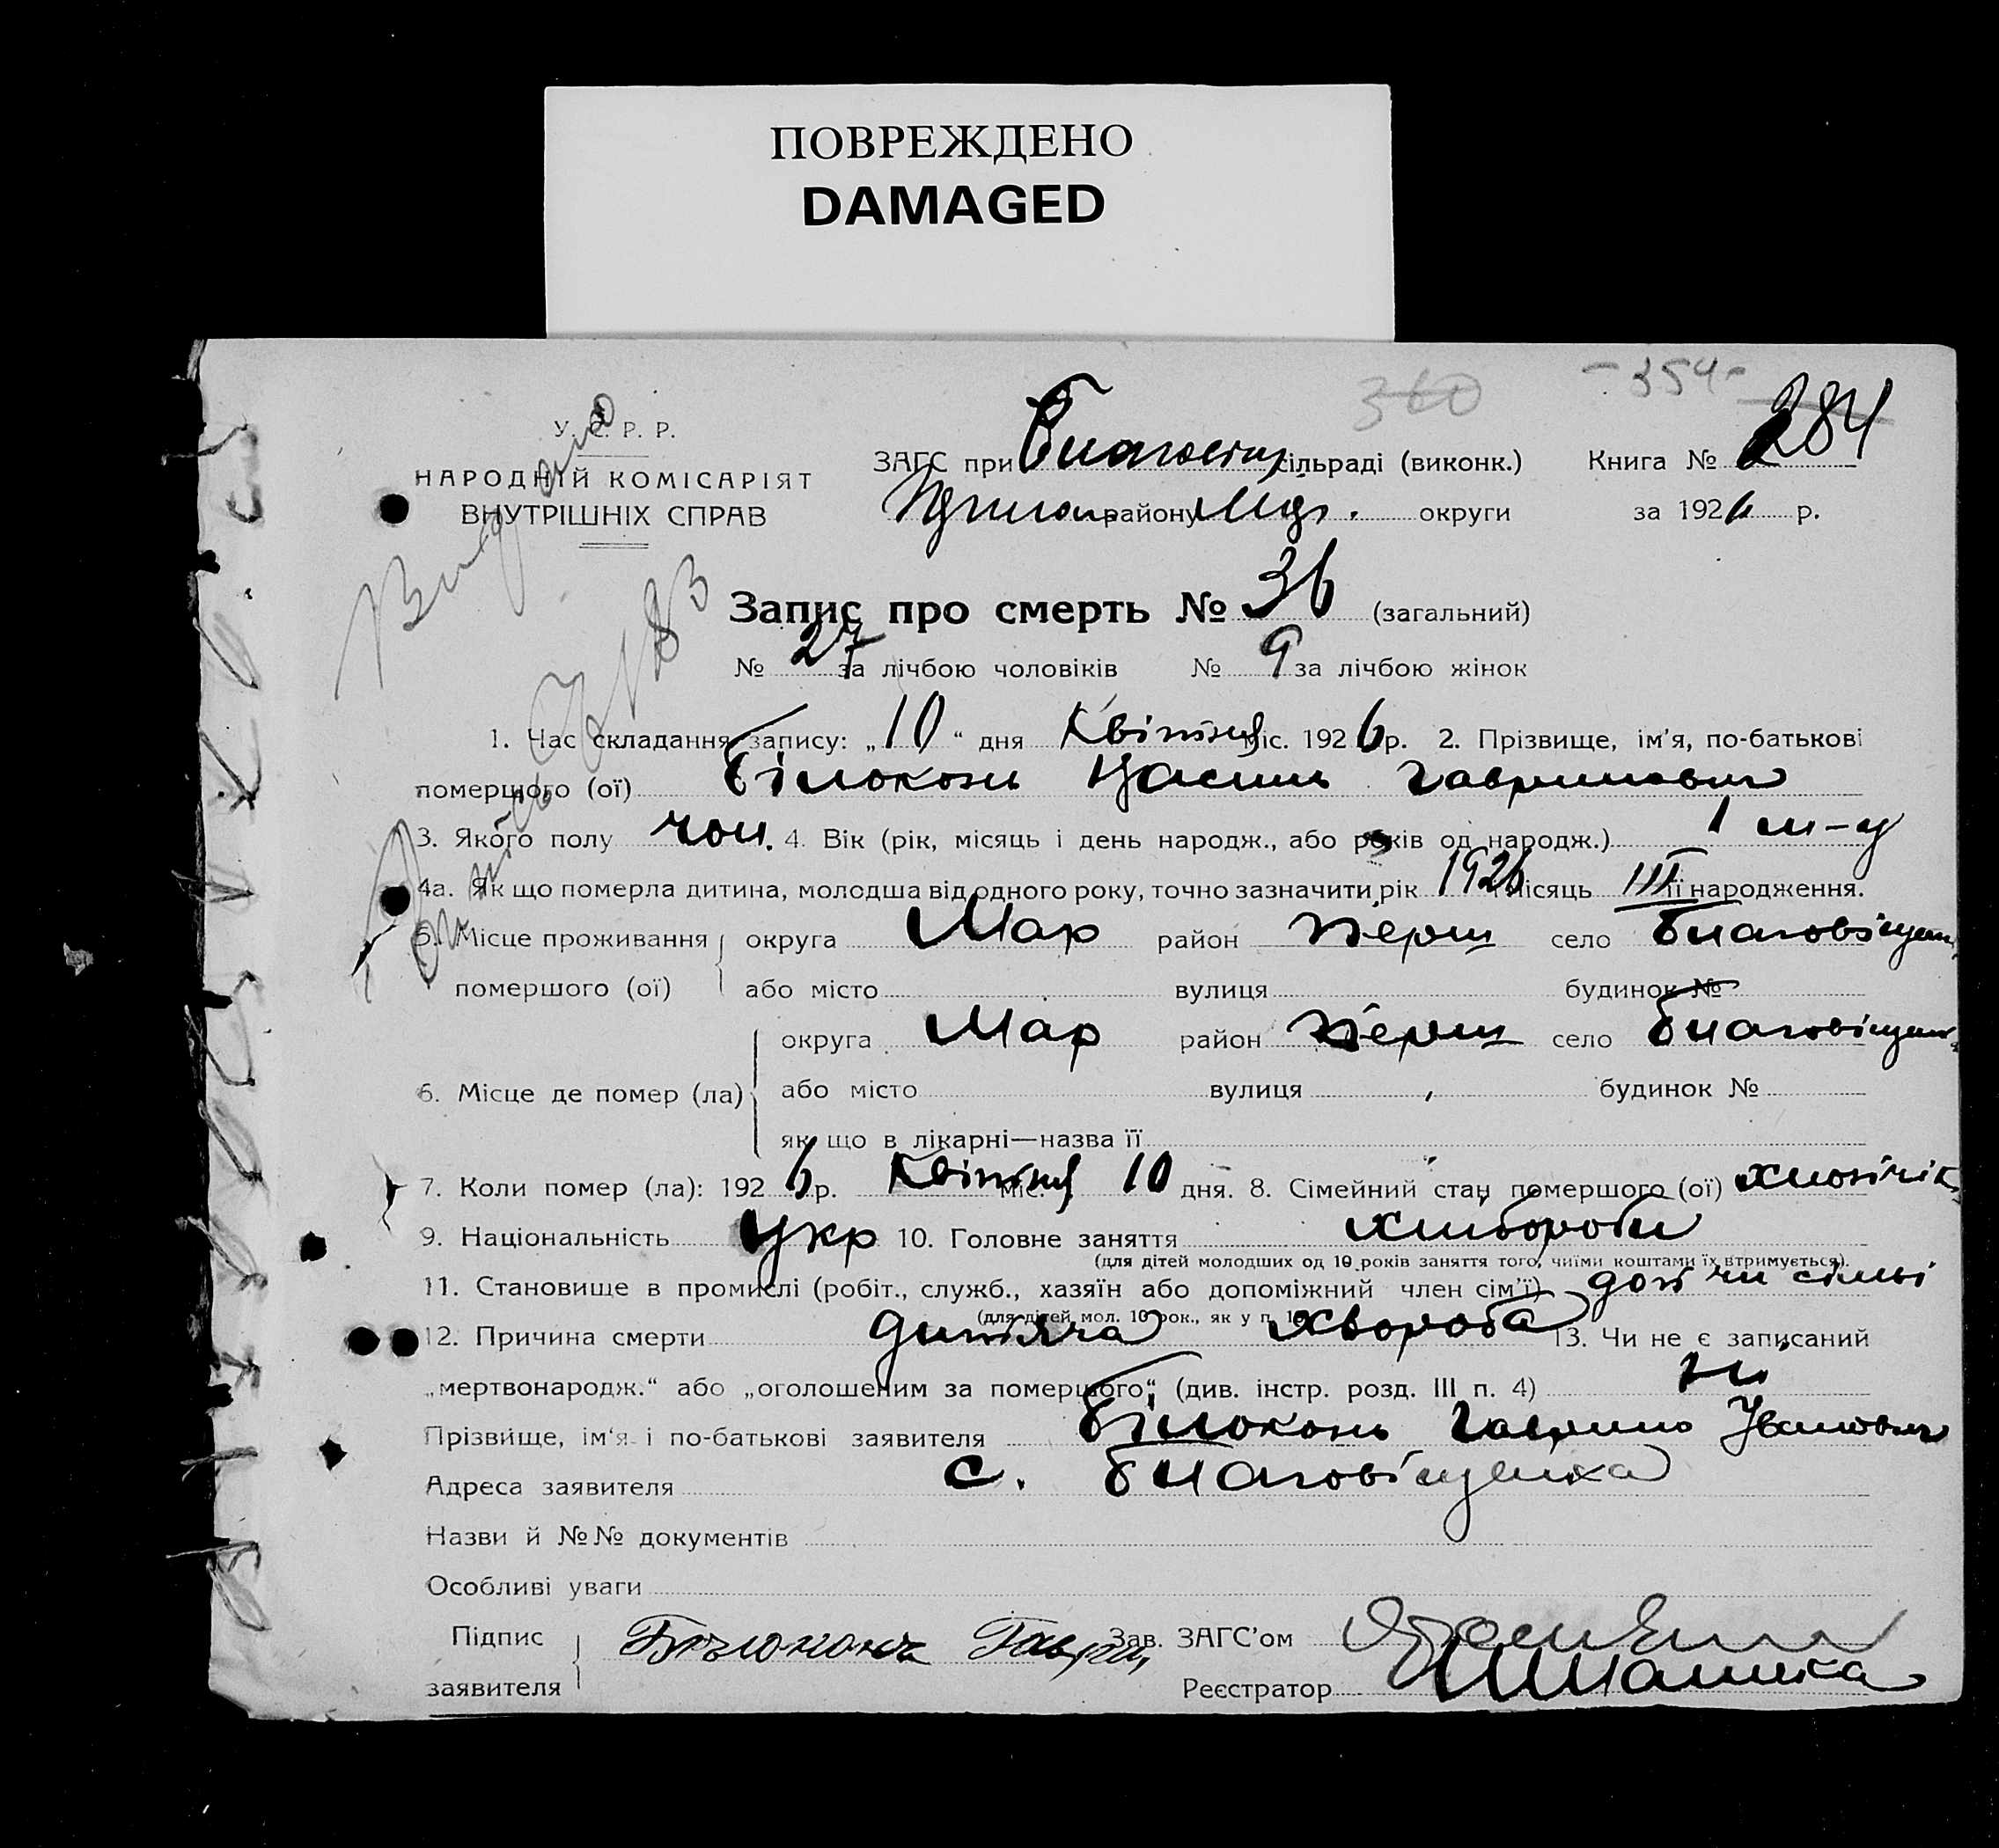 ПОВРЕЖДЕНО
DAMAGED
360
-354-
284
У. С. Р. Р.
НАРОДНІЙ КОМІСАРІЯТ
ВНУТРІШНІХ СПРАВ
ЗАГС при сільраді (виконк.) Книга №
району округи за 1926 р.
Запис про смерть № 36 (загальний)
№ 27 за лічбою чоловіків № 9 за лічбою жінок
1. Час складання запису: „10“ дня Квітня міс. 1926 р. 2. Прізвище, ім'я, по-батькові
помершого (ої) Білоконь
3. Якого полу чол. 4. Вік (рік, місяць і день народж., або років од народж.) 1 м-ц
4а. Як що померла дитина, молодша від одного року, точно зазначити рік 1926 місяць III її народження.
5. Місце проживання округа Мар район Перш село Благовіщен
помершого (ої) або місто вулиця будинок №
округа Мар район Перш село Благовіщен
6. Місце де помер (ла) або місто вулиця будинок №
як що в лікарні—назва її
7. Коли помер (ла): 1926 р. Квітня міс. 10 дня. 8. Сімейний стан помершого (ої) хлопчік
9. Національність Укр 10. Головне заняття хлібороби
(для дітей молодших од 10 років заняття того, чиїми коштами їх втримується).
11. Становище в промислі (робіт., служб., хазяїн або допоміжний член сім'ї) доп чл сімьі
(для дітей мол. 10 рок., як у п. 10)
12. Причина смерти дитяча хвороба 13. Чи не є записаний
„мертвонародж.“ або „оголошеним за помершого“ (див. інстр. розд. III п. 4) ні
Прізвище, ім'я і по-батькові заявителя Білоконь Гаврило Іванович
Адреса заявителя с. Благовіщенка
Назви й №№ документів
Особливі уваги
Підпис Зав. ЗАГС'ом
заявителя Реєстратор